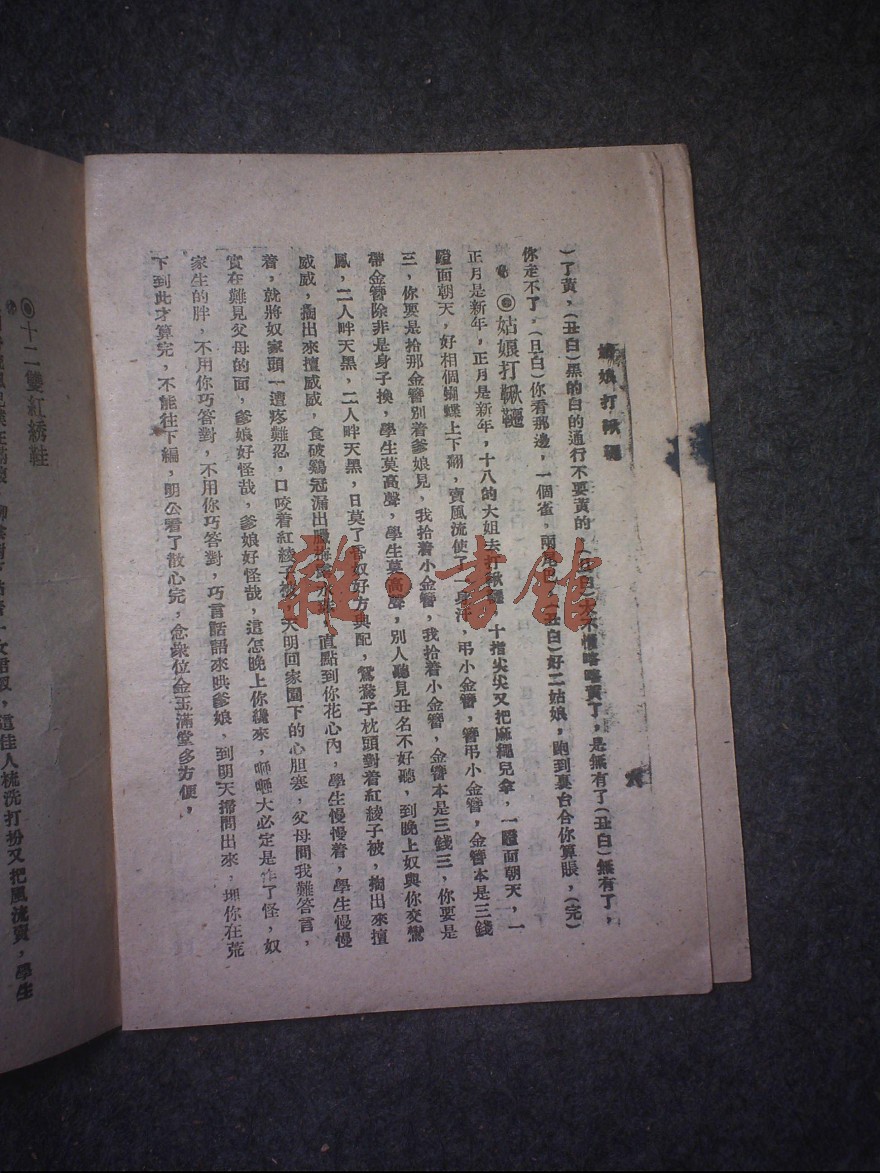 姑娘打鞦韆
)了黃，(丑白)黑的白的通行不要黃的，(旦白)大不懂咯咯黃了，是無有了(丑白)無有了，
你走不了，(旦白)你看那邊，一個雀，兩尾巴，(丑白)好二姑娘，跑到裏台合你算賬，(完)
◎姑娘打鞦韆
正月是新年，正月是新年，十八的大姐去打鞦韆，十指尖尖又把麻繩兒拿，一蹬面朝天，一
蹬面朝天，好相個蝴蝶上下翻，賣風流使了一身汗，弔小金簪，簪弔小金簪，金簪本是三錢
三，你要是拾那金簪別着爹娘見，我拾着小金簪，我拾着小金簪，金簪本是三錢三，你要是
帶金簪除非是身子換，學生莫高聲，學生莫高聲，別人聽見丑名不好聽，到晚上奴與你交鸞
鳳，二人畔天黑，二人畔天黑，日莫了香奴好方興配，鴛鴦子枕頭對着紅綾子被，掏出來擅
威威，掏出來擅威威，食破鷄冠漏出水，直點到你花心內，學生慢慢着，學生慢慢
着，就將奴家頭一遭疼難忍，口咬着紅綾子被，天明回家園下的心胆塞，父母問我難答言，
實在難見父母的面，爹娘好怪哉，爹娘好怪哉，這怎晚上你纔來，咂咂大必定是作了怪，奴
家生的胖，不用你巧答對，不用你巧答對，巧言話語來哄爹娘，到明天掃問出來，埋你在荒
下到此才算完，不能往下編，明公看了散心完，念衆位金玉滿堂多方便，
◎十二雙紅綉鞋
女君叔，這佳人梳洗打扮又把風流賣，學生
雜·書館